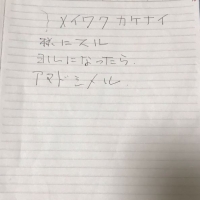 メイワクカケナイ
様にスル
ヨルになったら
アマドシメル